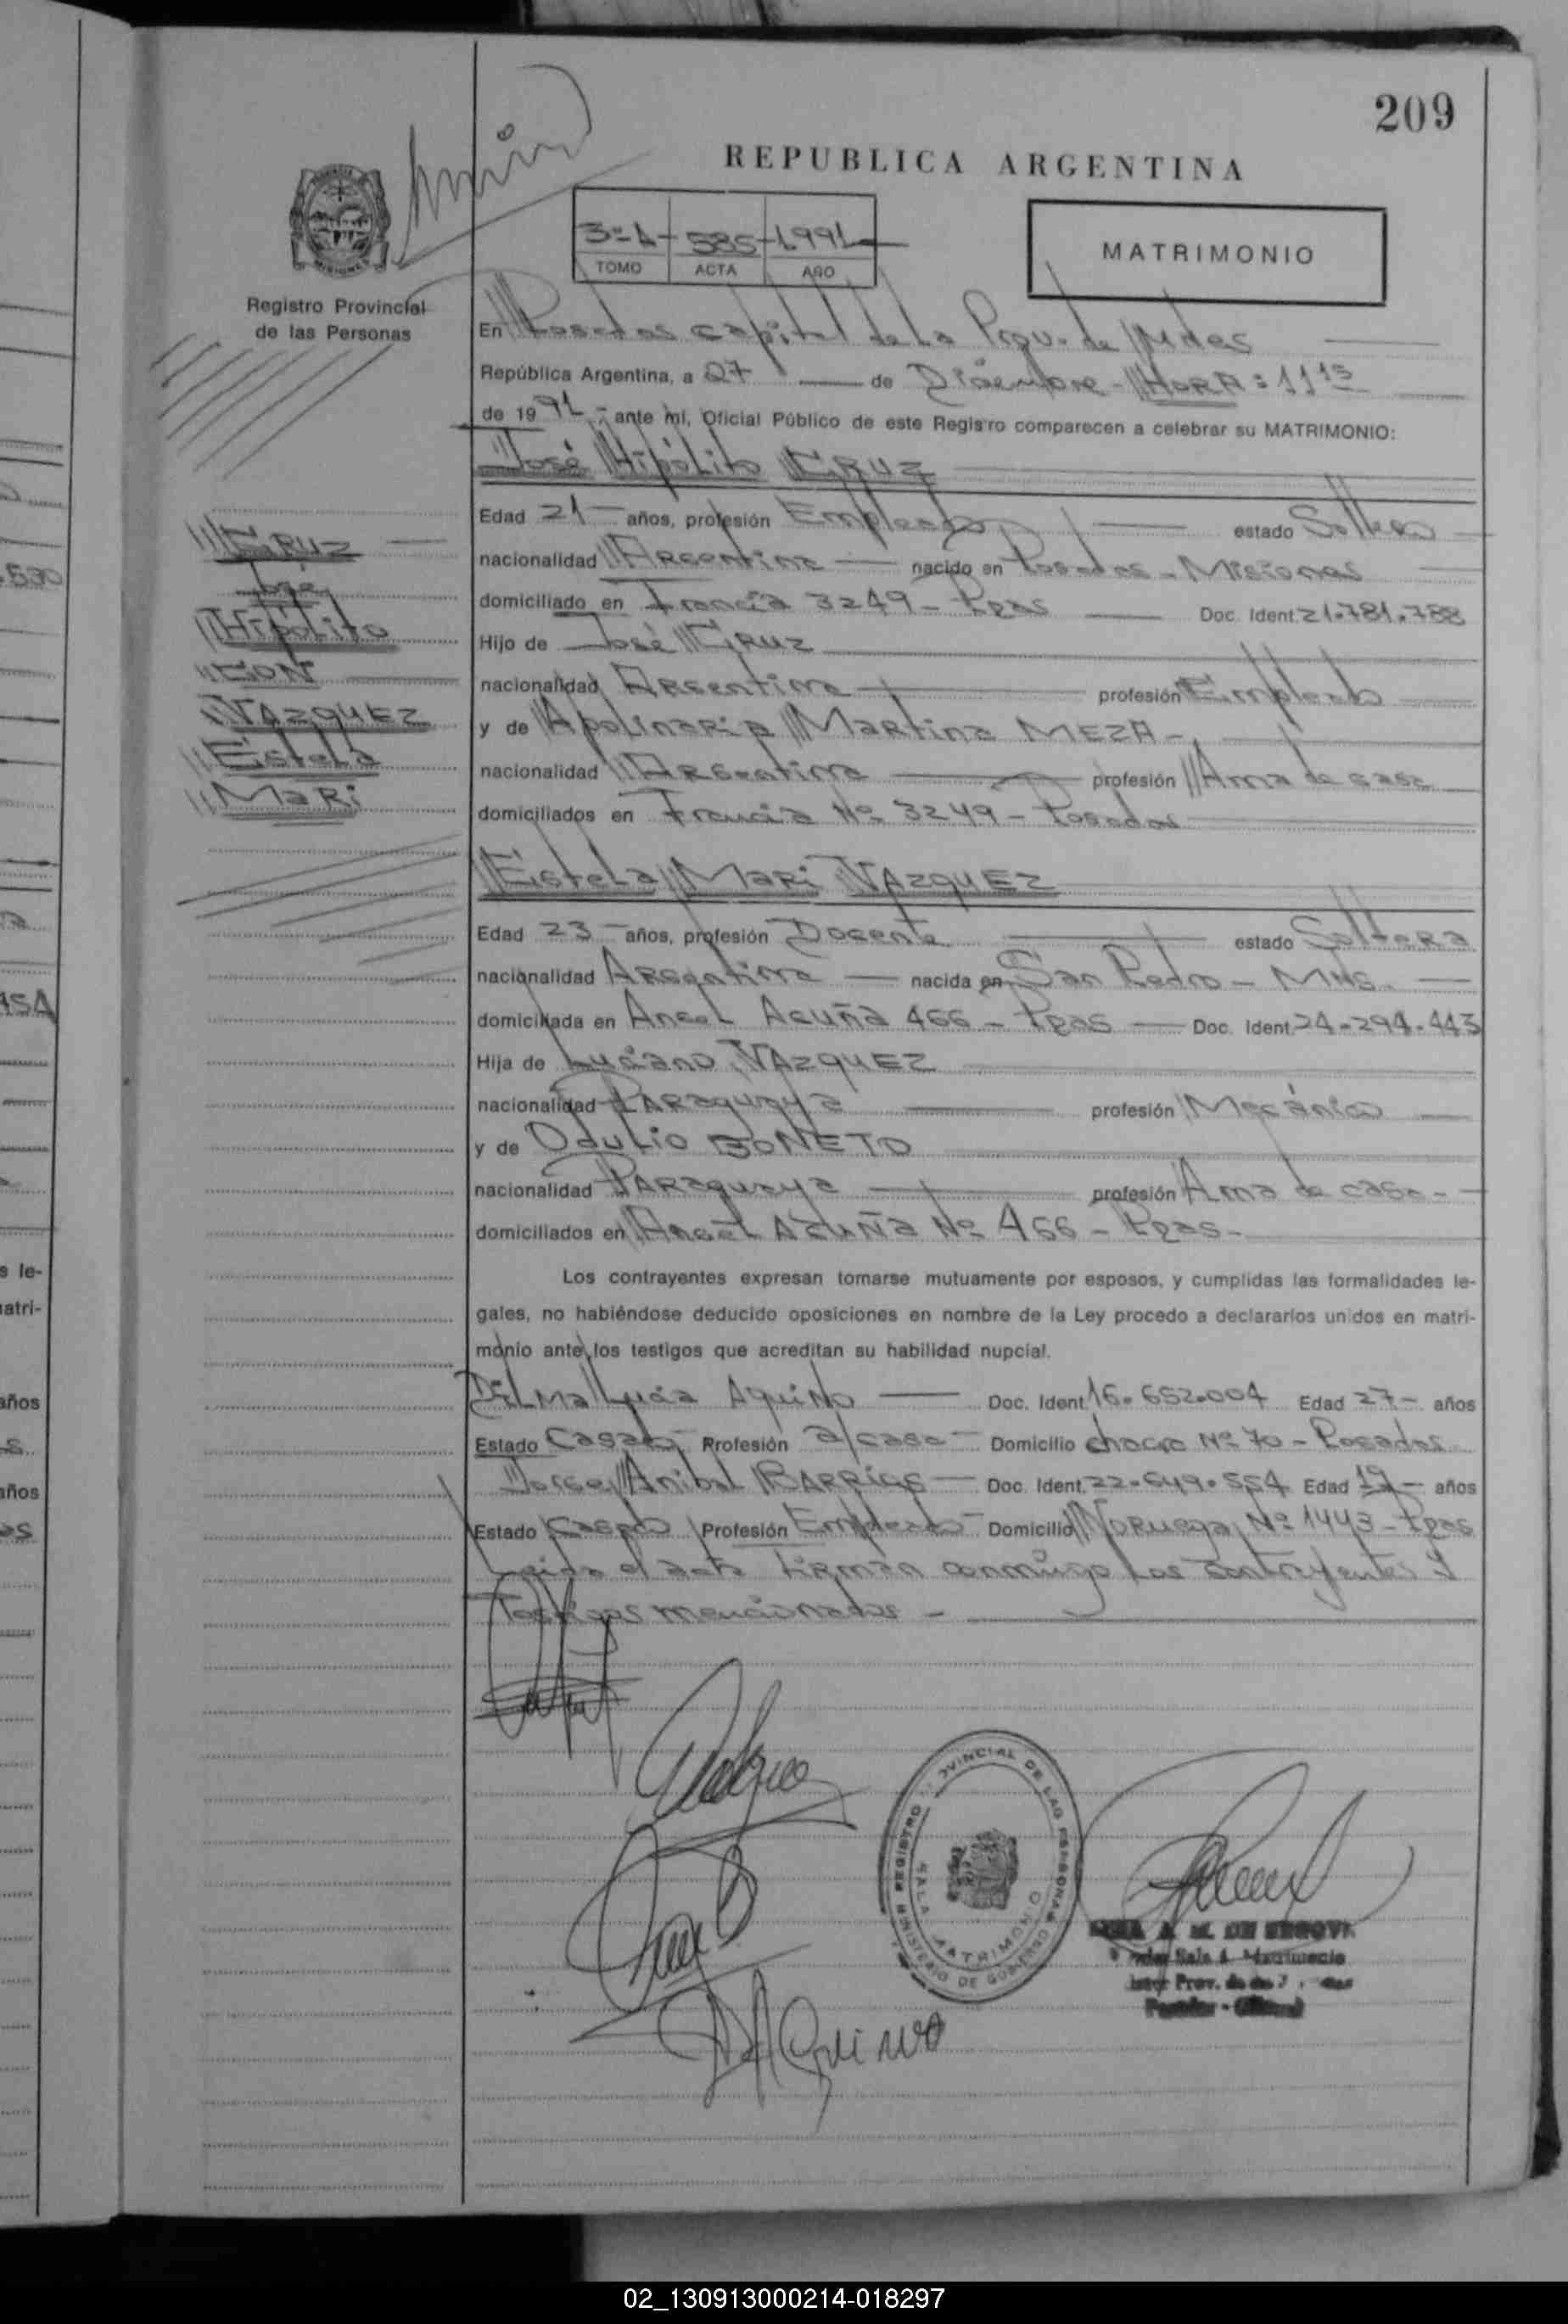 209
REPUBLICA ARGENTINA
3º-A- 585-1.991-
TOMO ACTA AÑO
MATRIMONIO
Registro Provincial
de las Personas
En Posadas capital de la Prov. de Mnes
República Argentina, a 27 de Diciembre - HORA: 11 15
de 19 91 - ante mí, Oficial Público de este Registro comparecen a celebrar su MATRIMONIO:
José Hipólito CRUZ
Edad 21 - años, profesión Empleado estado Soltero
nacionalidad Argentina nacido en Posadas - Misiones
domiciliado en Francia 3249 - Pdas Doc. Ident. 21.781.788
Hijo de José CRUZ
nacionalidad Argentina profesión Empleado
y de Apolinaria Martina MEZA -
nacionalidad Argentina profesión Ama de casa
domiciliados en Francia Nº 3249 - Posadas
CRUZ
José
Hipólito
CON
VAZQUEZ
Estela
Mari
Estela Mari VAZQUEZ
Edad 23 - años, profesión Docente estado Soltera
nacionalidad Argentina nacida en San Pedro - Mnes.
domiciliada en Angel Acuña 466 - Pdas Doc. Ident. 24.294.443
Hija de Luciano VAZQUEZ
nacionalidad Paraguaya profesión Mecánico
y de Odulio BONETO
nacionalidad Paraguaya profesión Ama de casa -
domiciliados en Angel Acuña Nº 466 - Pdas -
Los contrayentes expresan tomarse mutuamente por esposos, y cumplidas las formalidades le-
gales, no habiéndose deducido oposiciones en nombre de la Ley procedo a declararlos unidos en matri-
monio ante los testigos que acreditan su habilidad nupcial.
Dilma Lucia Aquino Doc. Ident. 16.652.004 Edad 27 - años
Estado Casada Profesión a/casa - Domicilio chacra Nº 70 - Posadas
Jorge Anibal BARRIOS - Doc. Ident. 22.649.554 Edad 19 - años
Estado Casado Profesión Empleado - Domicilio Noruega Nº 1443 - Pdas
Leida el acta firman conmigo los contrayentes y
Testigos mencionados -
REGISTRO PROVINCIAL DE LAS PERSONAS
SALA MATRIMONIO
MINISTERIO DE GOBIERNO
A. M. DE SEGOVIA
DAquino
02_130913000214-018297